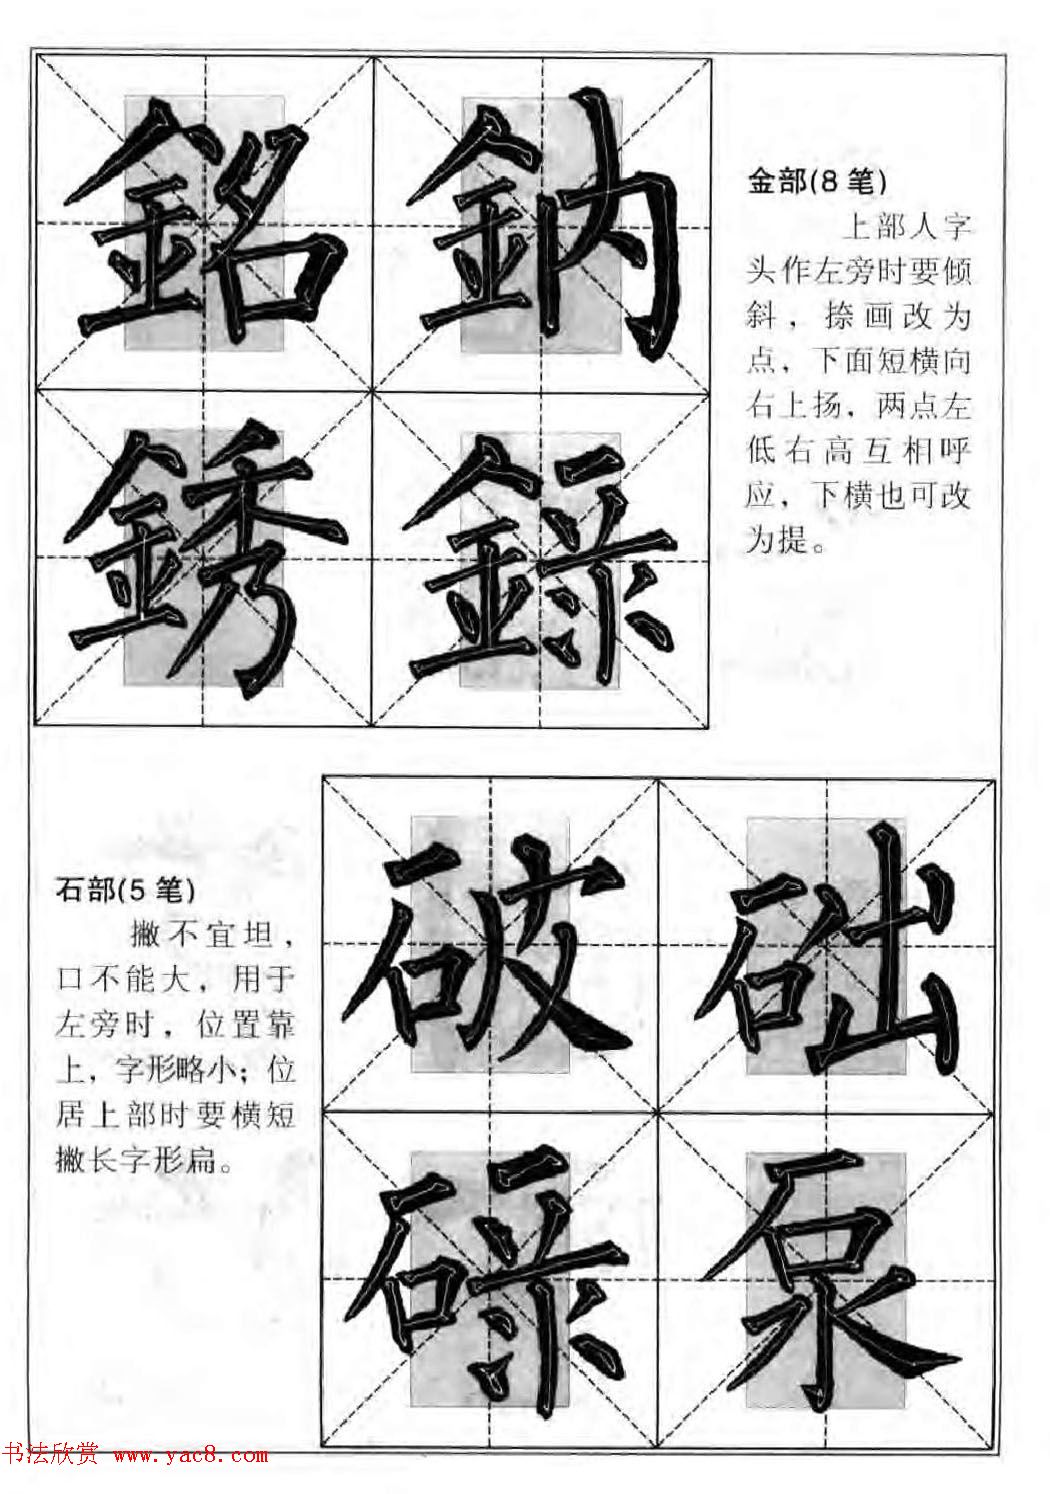 銘 鈉
銹 錄
金部(8 笔)
上部人字
头作左旁时要倾
斜，捺画改为
点，下面短横向
右上扬，两点左
低右高互相呼
应，下横也可改
为提。
石部(5 笔)
撇不宜坦，
口不能大，用于
左旁时，位置靠
上，字形略小；位
居上部时要横短
撇长字形扁。
破 础
碌 泵
书法欣赏 www.yac8.com